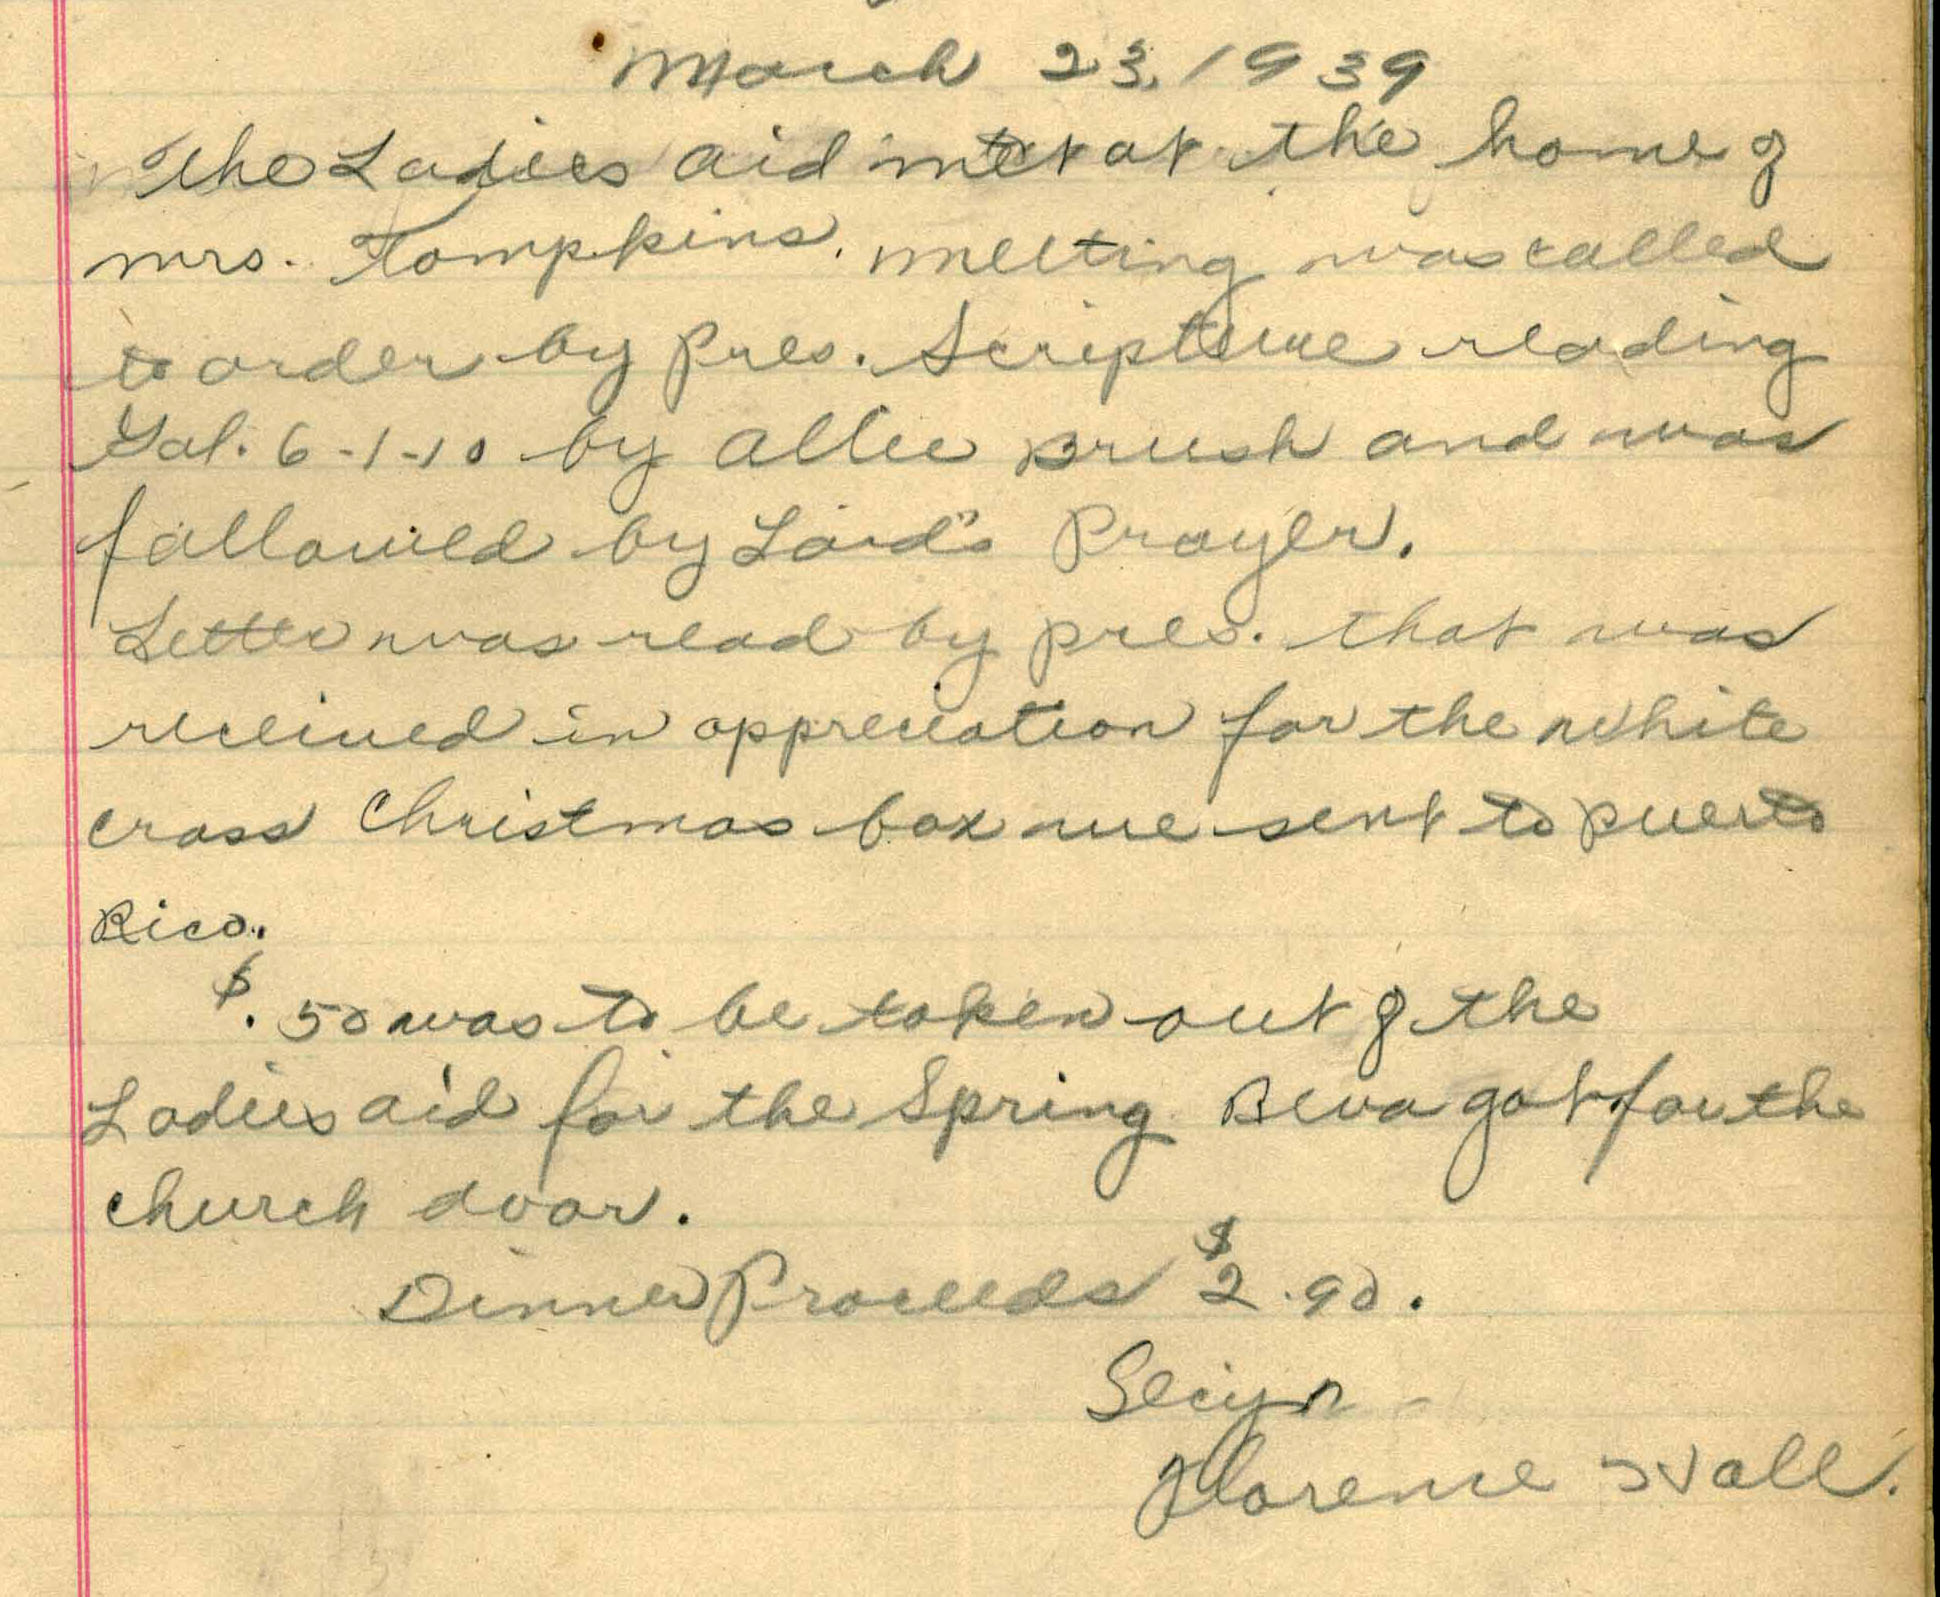 March 23, 1939
The Ladies aid met at the home of
mrs. Tompkins. meeting was called
to order by Pres. Scripture reading
Gal. 6-1-10 by Allie Brush and was
followed by Lord's Prayer.
Letter was read by pres. that was
received in appreciation for the White
cross Christmas box we sent to Puerto
Rico.
$.50 was to be taken out of the
Ladies aid for the Spring Beva got for the
church door.
Dinner Proceeds $2.90.
Sec'y
Florence Wall.